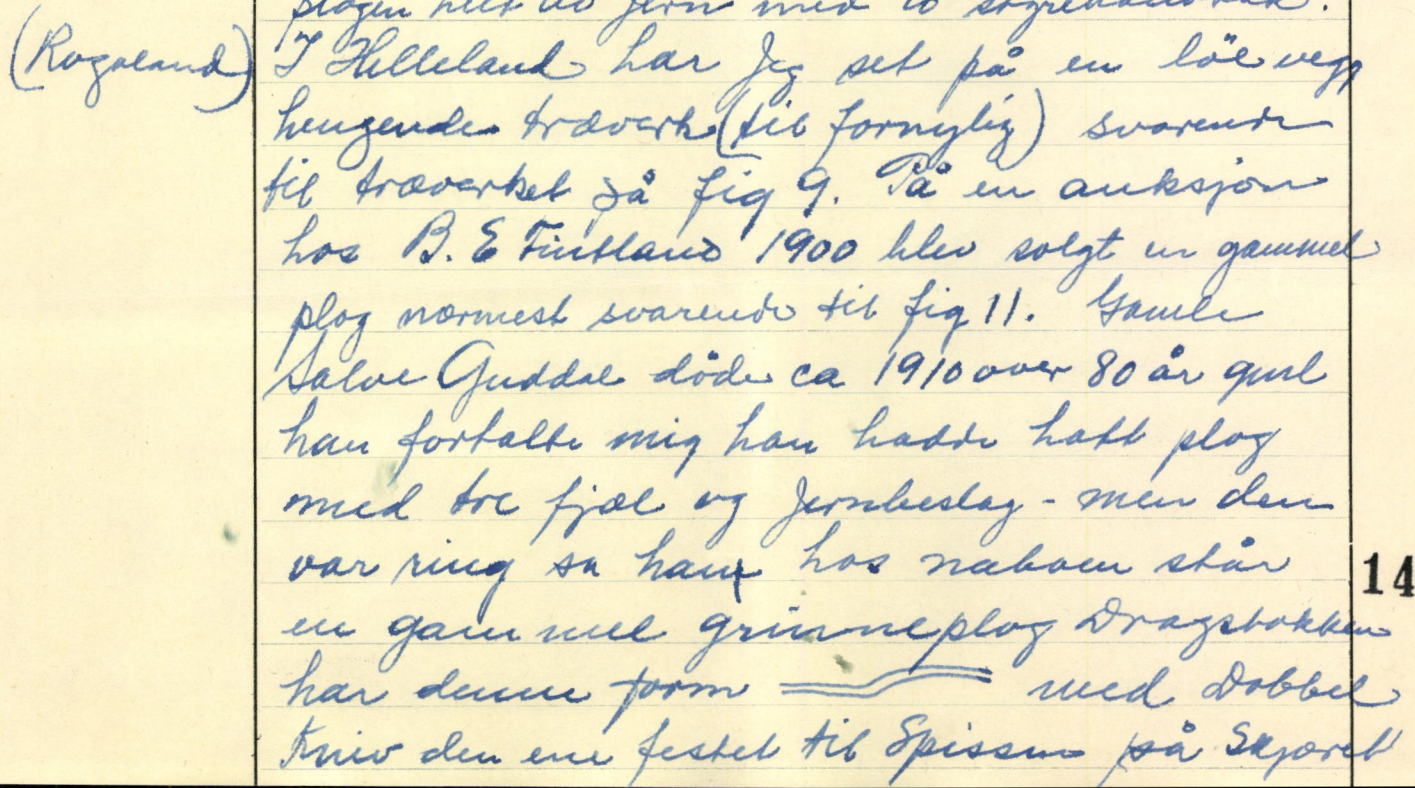 plogen helt av jern med to
(Rogaland) I Helleland har Jeg set på en löe vegg
hengende træverk (til fornylig) svarende
til træverket på fig 9. På en auksjon
hos B. E Fintland 1900 blev solgt en gammel
plog nærmest svarende til fig 11. Gamle
Salve Guddal döde ca 1910 over 80 år gml
han fortalte mig han hadde hatt plog
med tre fjæl og Jernbeslag - men den
var ring sa han hos naboen står
en gammel grinneplog Dragstokken
14
har denne form med Dobbel
Kniv den ene festet til Spissen på Skjæret